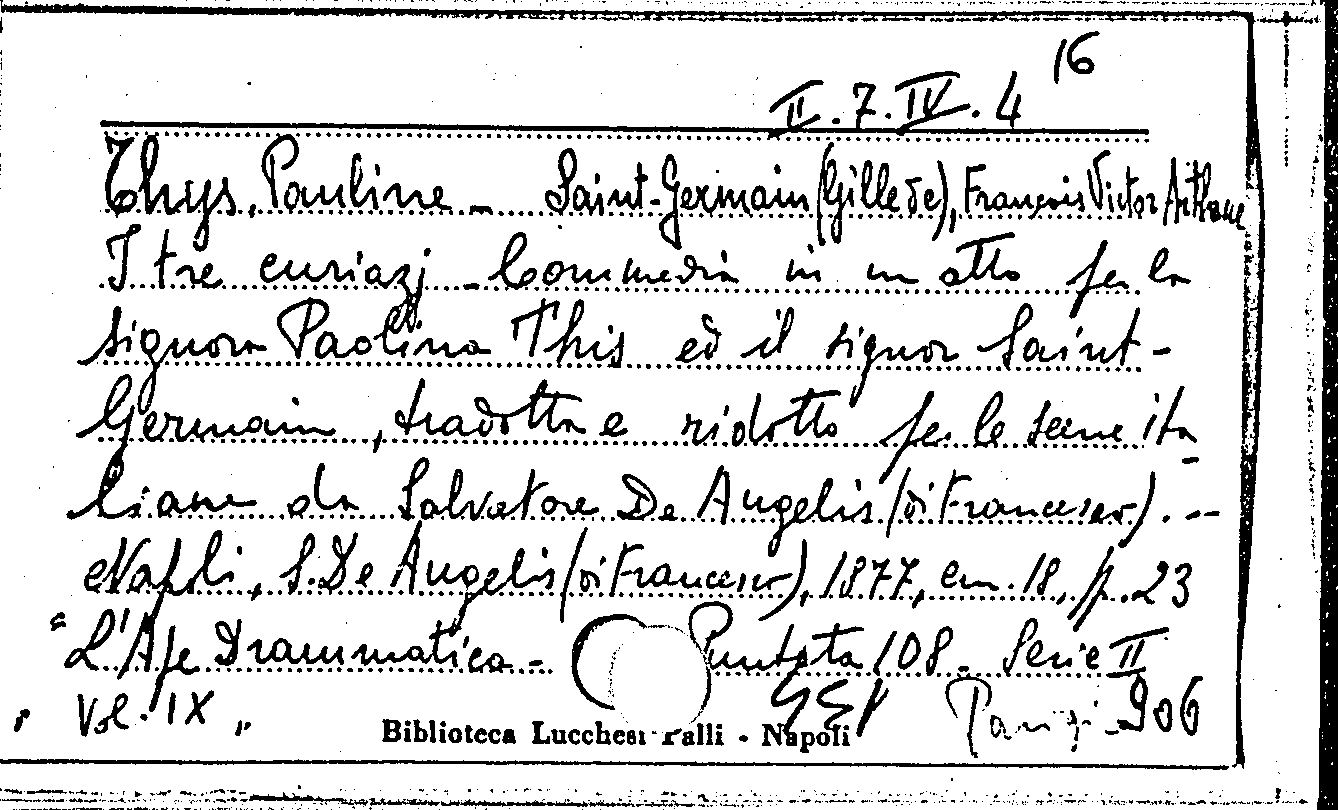 16
II. 7. IV. 4
Thys, Pauline - Saint-Germain (Gille de), François Victor Arthur
I tre curiazj - Commedia in un atto per la
signora Paolina This ed il signor Saint-
Germain, tradotta e ridotta per le scene ita-
liane da Salvatore De Angelis (di Francesco). -
Napoli, S. De Angelis (di Francesco), 1877, cm. 18, p. 23
"L'Ape Drammatica - Puntata 108 - Serie II
Vol. IX"
906
Biblioteca Lucchesi Palli - Napoli